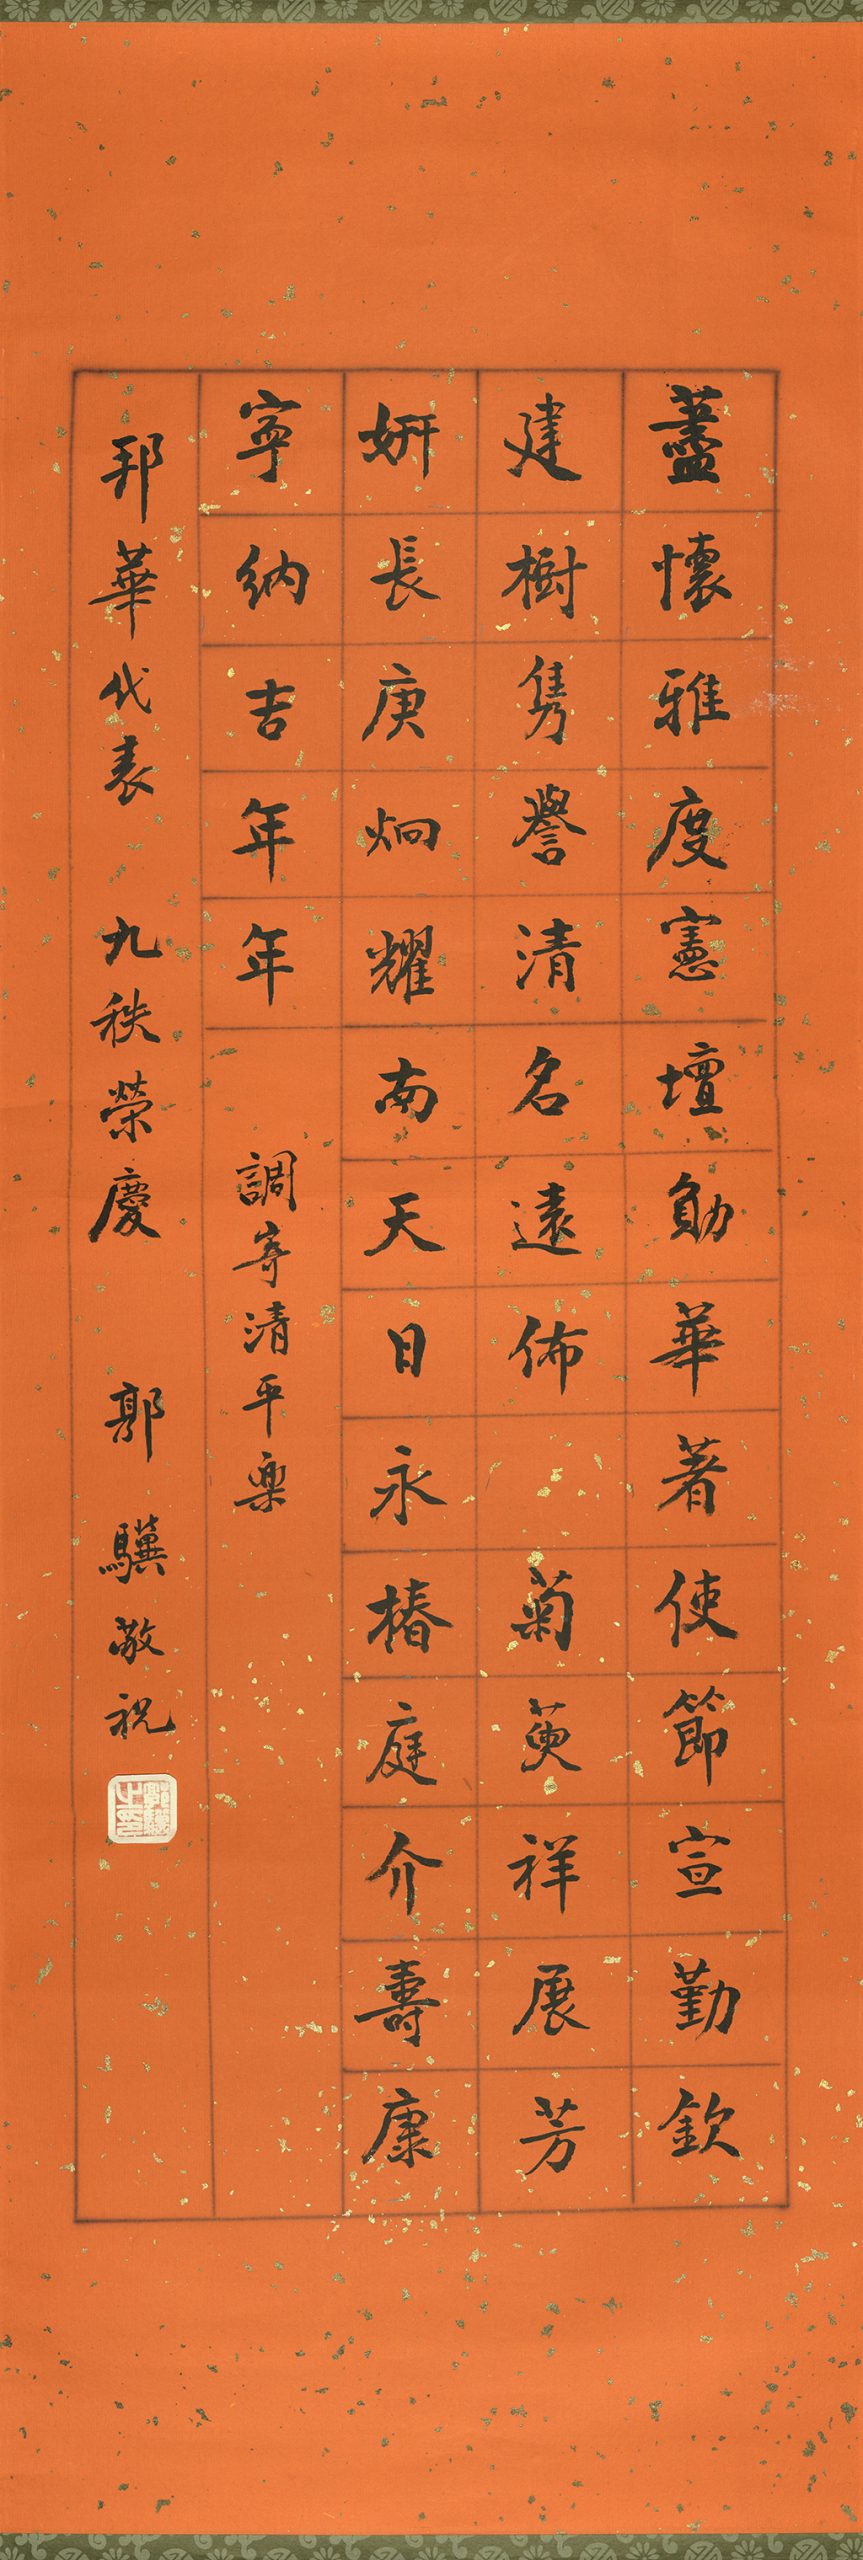 藎懷雅度憲壇勛華著使節宣勤欽
建樹雋譽清名遠佈 菊萸祥展芳
妍長庚炯耀南天日永椿庭介壽康
寧納吉年年 調寄清平樂
邦華代表 九秩榮慶 郭驥敬祝
郭驥之印